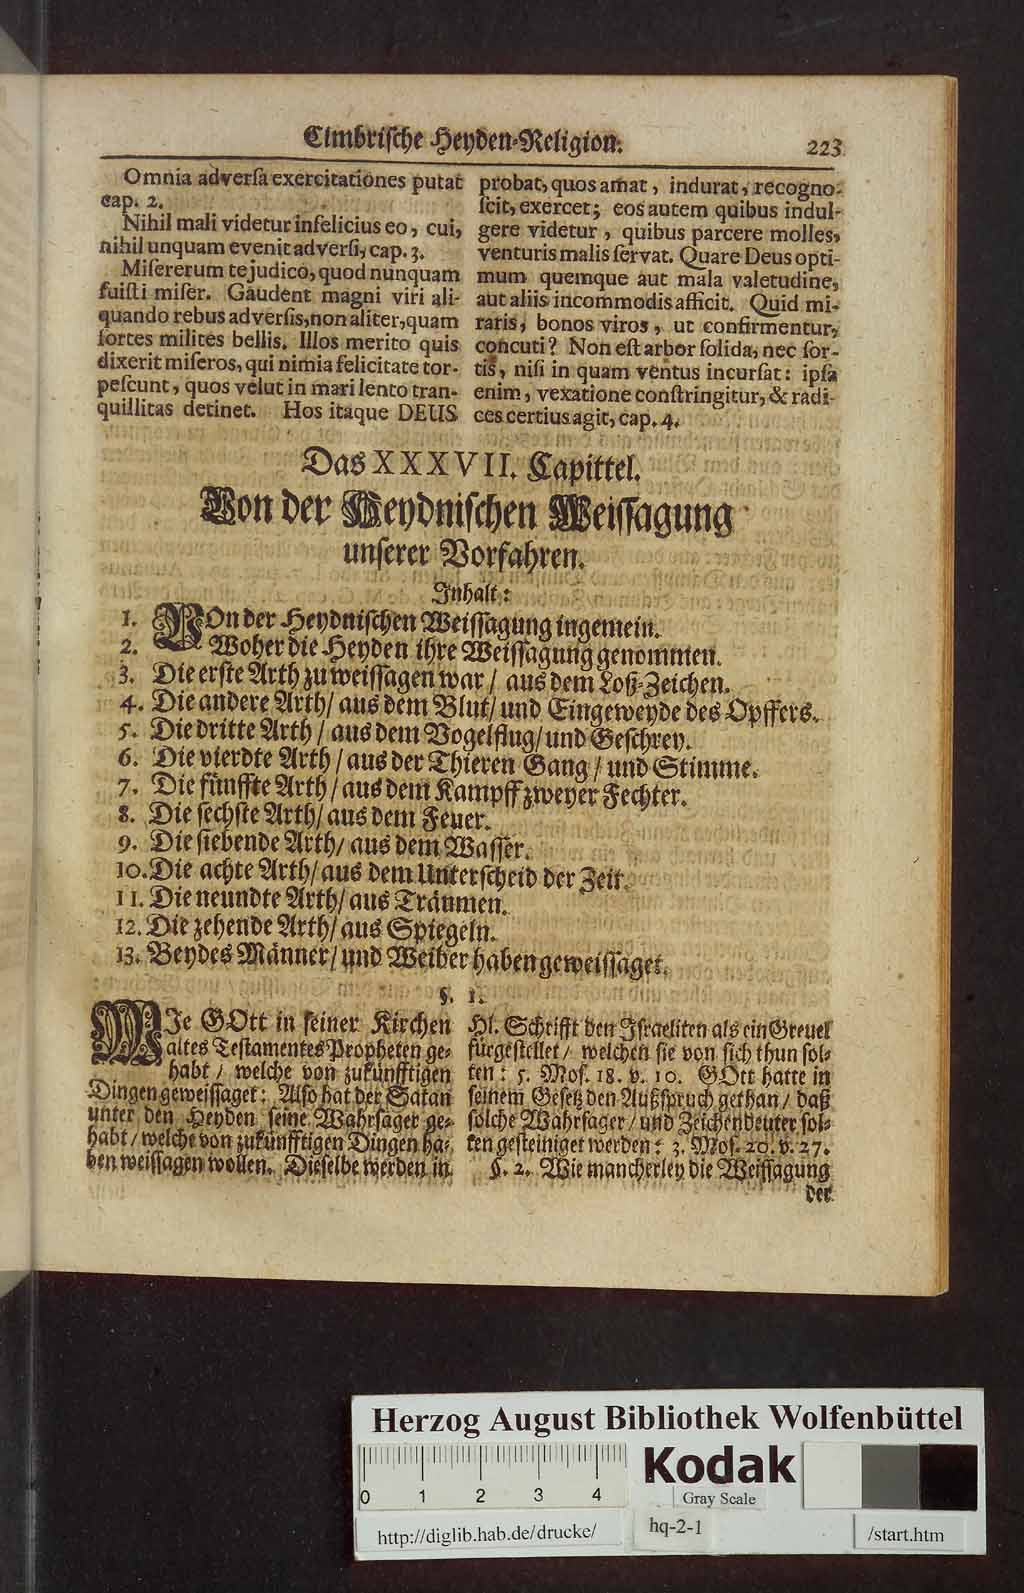 Cimbrische Heyden-Religion. 223
Omnia adversa exercitationes putat
cap. 2.
Nihil mali videtur infelicius eo, cui,
nihil unquam evenit adversi, cap. 3.
Misererum te judico, quod nunquam
fuisti miser. Gaudent magni viri ali-
quando rebus adversis, non aliter, quam
fortes milites bellis. Illos merito quis
dixerit miseros, qui nimia felicitate tor-
pescunt, quos velut in mari lento tran-
quillitas detinet. Hos itaque DEUS
probat, quos amat, indurat, recogno-
scit, exercet; eos autem quibus indul-
gere videtur, quibus parcere molles,
venturis malis servat. Quare Deus opti-
mum quemque aut mala valetudine,
aut aliis incommodis afficit. Quid mi-
raris, bonos viros, ut confirmentur,
concuti? Non est arbor solida, nec for-
tis, nisi in quam ventus incursat: ipsa
enim, vexatione constringitur, & radi-
ces certius agit, cap. 4.
Das XXXVII. Capittel.
Von der Heydnischen Weissagung
unserer Vorfahren.
Inhalt:
1. VOn der Heydnischen Weissagung ingemein.
2. Woher die Heyden ihre Weissagung genommen.
3. Die erste Arth zu weissagen war / aus dem Loß-Zeichen.
4. Die andere Arth / aus dem Blut / und Eingeweyde des Opffers.
5. Die dritte Arth / aus dem Vogelflug / und Geschrey.
6. Die vierdte Arth / aus der Thieren Gang / und Stimme.
7. Die fünffte Arth / aus dem Kampff zweyer Fechter.
8. Die sechste Arth / aus dem Feuer.
9. Die siebende Arth / aus dem Wasser.
10. Die achte Arth / aus dem Unterscheid der Zeit.
11. Die neundte Arth / aus Träumen.
12. Die zehende Arth / aus Spiegeln.
13. Beydes Männer / und Weiber haben geweissaget.
§. 1.
WJe GOtt in seiner Kirchen
altes Testamentes Propheten ge-
habt / welche von zukünfftigen
Dingen geweissaget: Also hat der Satan
unter den Heyden seine Wahrsager ge-
habt / welche von zukünfftigen Dingen ha-
ben weissagen wollen. Dieselbe werden in
Hl. Schrifft den Israeliten als ein Greuel
fürgestellet / welchen sie von sich thun sol-
ten: 5. Mos. 18. v. 10. GOtt hatte in
seinem Gesetz den Außspruch gethan / daß
solche Wahrsager / und Zeichendeuter sol-
ten gesteiniget werden: 3. Mos. 20. v. 27.
§. 2. Wie mancherley die Weissagung
der
Herzog August Bibliothek Wolfenbüttel
0 1 2 3 4
Kodak
Gray Scale
http://diglib.hab.de/drucke/
hq-2-1
/start.htm